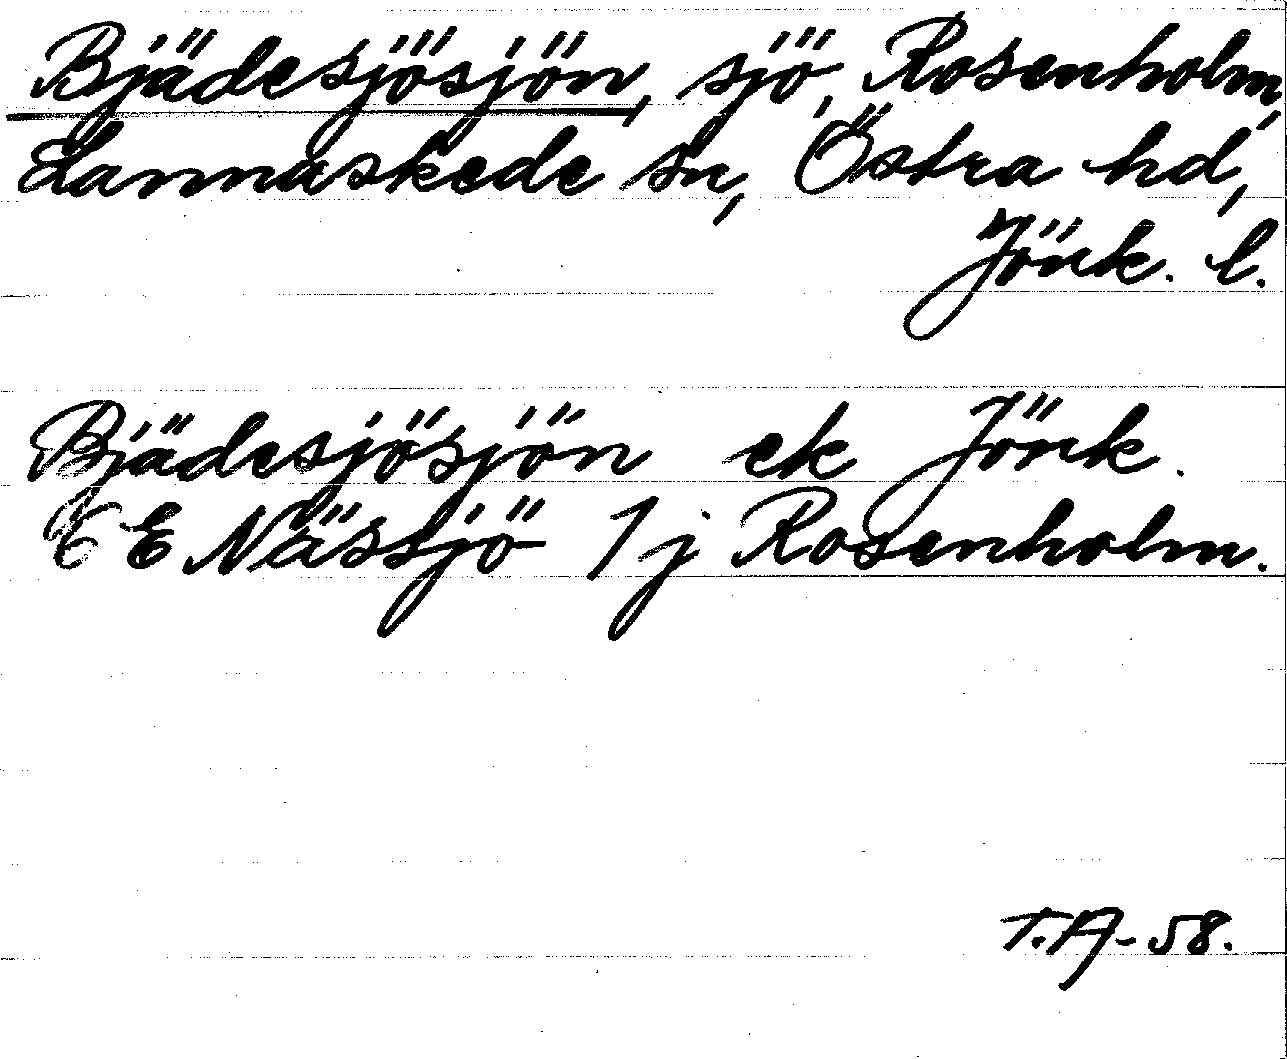 Bjädesjösjön, sjö, Rosenholm,
Lannaskede sn, Östra hd,
Jönk. l.
Bjädesjösjön ek Jönk.
6 E Nässjö 1 j Rosenholm.
T.A-58.